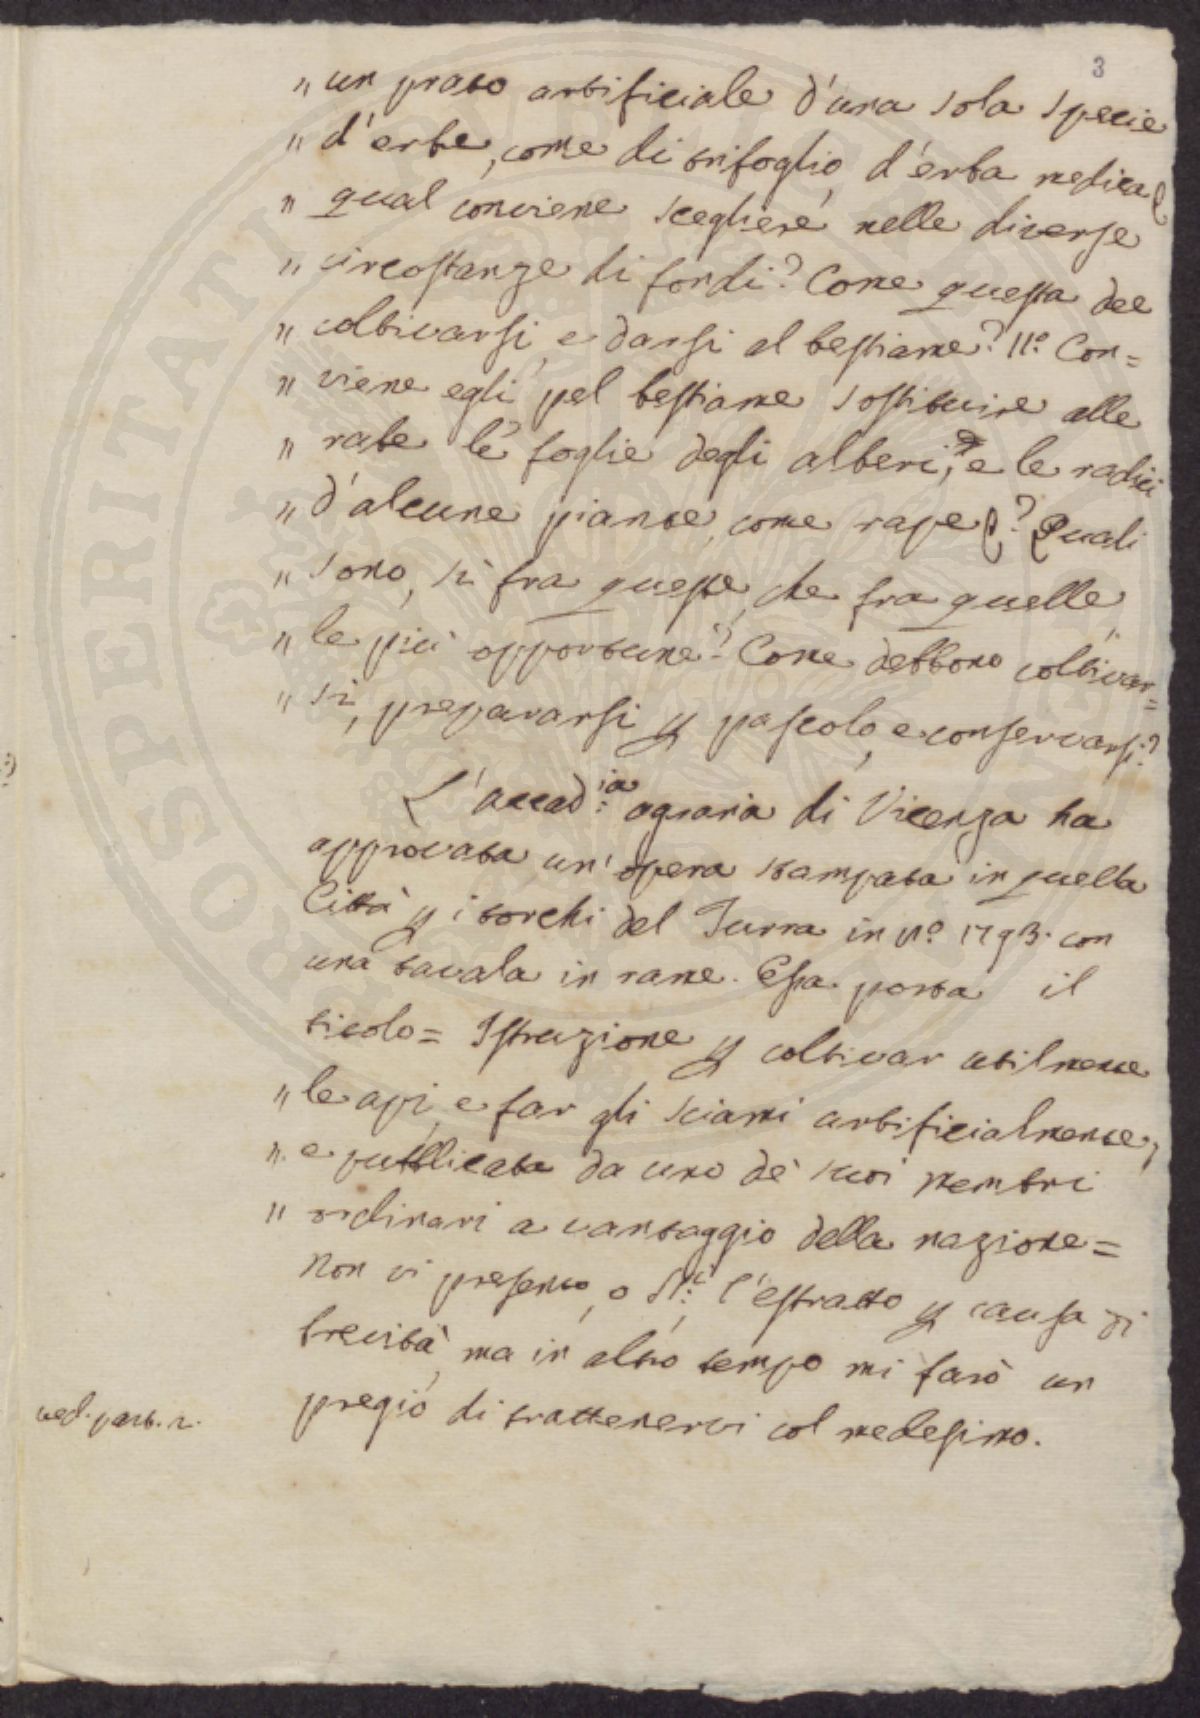 3
" un prato artificiale d'una sola specie
" d'erbe, come di trifoglio, d'erba medica &
" qual conviene scegliere nelle diverse
" circostanze di fondi? Come questa dee
" coltivarsi, e darsi al bestiame? 11.º Con=
" viene egli pel bestiame sostituire alle
" rabe le foglie degli alberi, e le radici
" d'alcune piante, come rape &? Quali
" sono, sì fra queste, che fra quelle,
" le più opportune? Come debbono coltivar=
" si, prepararsi p pascolo, e conservarsi?
L'accad:ia agraria di Vicenza ha
approvata un'opera stampata in quella
Città p i torchi del Turra in 1793. con
una tavala in rame. Essa porta il
titolo= Istruzione p coltivar utilmente
" le api, e far gli sciami artificialmente,
" e pubblicata da uno de' suoi membri
" ordinari a vantaggio della nazione=
Non vi presento, o S:i, l'estratto p causa di
brevità, ma in altro tempo mi farò un
pregio di trattenervi col medesimo.
ved. part. 2.
PROSPERITATI PUBLICAE